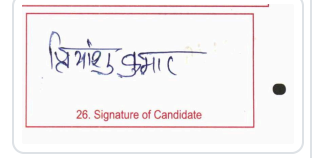 प्रियांशु कुमार
26. Signature of Candidate